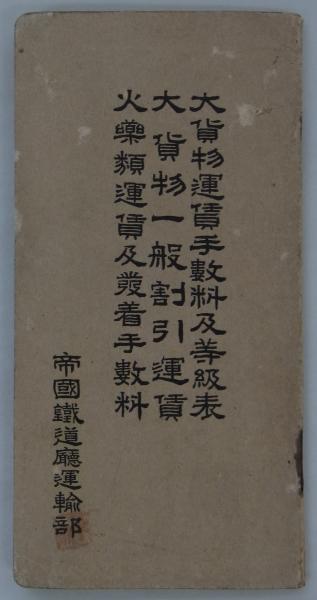 大貨物運賃手數料及等級表
大貨物一般割引運賃
火藥類運賃及發着手數料
帝國鐵道廳運輸部